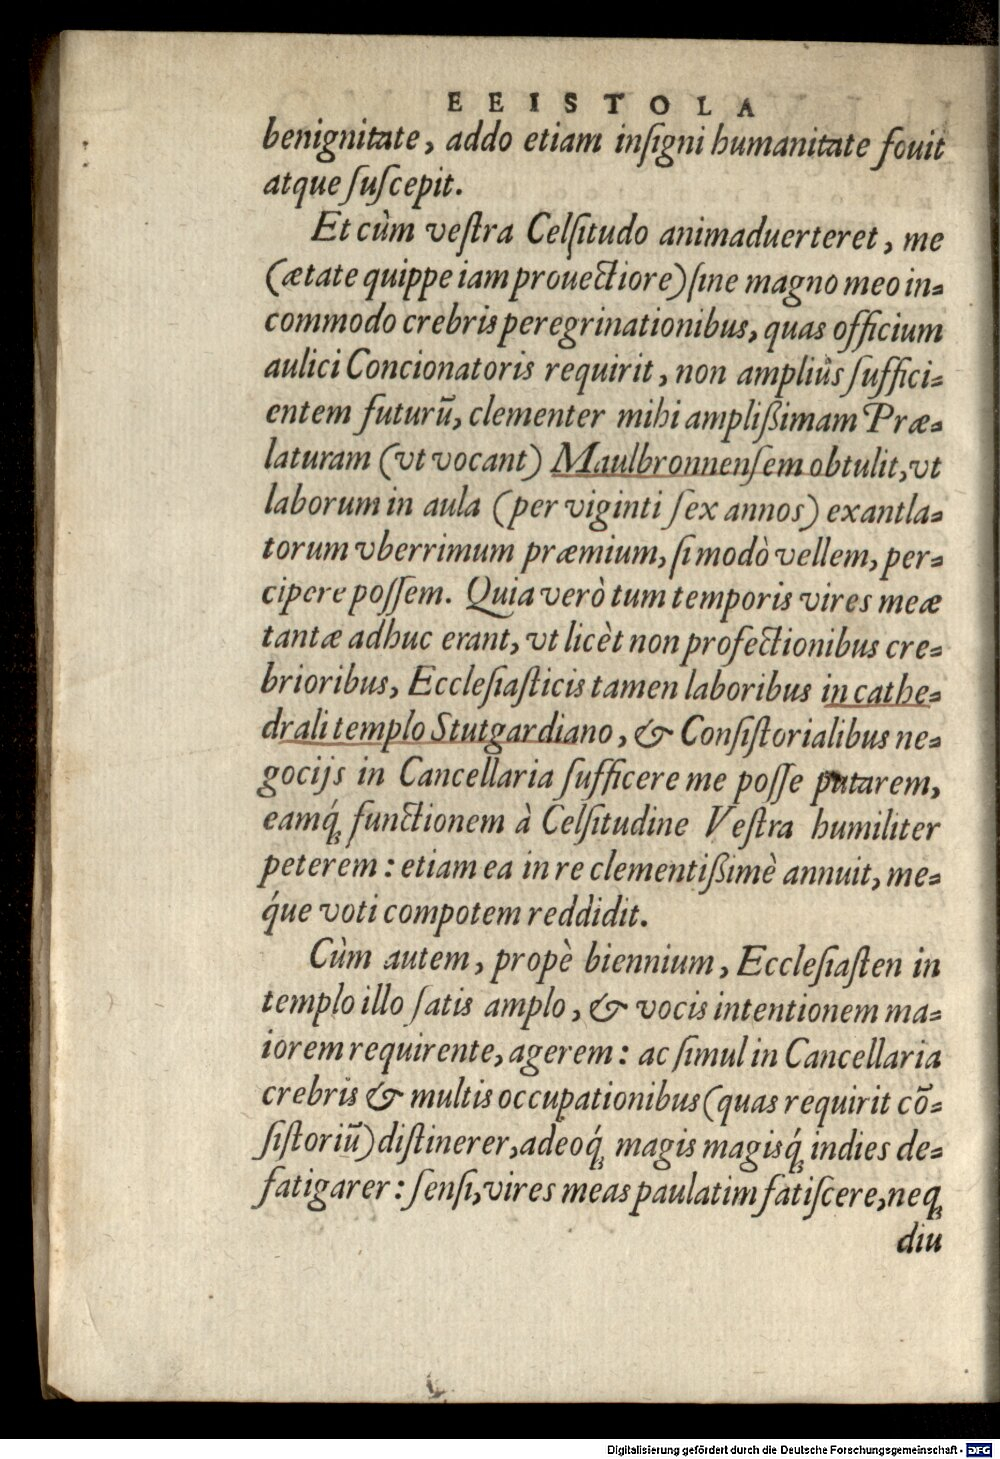 EEISTOLA
benignitate, addo etiam inſigni humanitate fouit
atque ſuſcepit.
Et cùm veſtra Celſitudo animaduerteret, me
(ætate quippe iam prouectiore) ſine magno meo in⸗
commodo crebris peregrinationibus, quas officium
aulici Concionatoris requirit, non ampliùs ſuffici⸗
entem futurũ, clementer mihi amplißimam Præ⸗
laturam (vt vocant) Maulbronnenſem obtulit, vt
laborum in aula (per viginti ſex annos) exantla⸗
torum vberrimum præmium, ſi modò vellem, per⸗
cipere poſſem. Quia verò tum temporis vires meæ
tantæ adhuc erant, vt licèt non profectionibus cre⸗
brioribus, Eccleſiaſticis tamen laboribus in cathe⸗
drali templo Stutgardiano, & Conſiſtorialibus ne⸗
gocijs in Cancellaria ſufficere me poſſe putarem,
eamq́ꝫ functionem à Celſitudine Veſtra humiliter
peterem: etiam ea in re clementißimè annuit, me⸗
q́ue voti compotem reddidit.
Cùm autem, propè biennium, Eccleſiaſten in
templo illo ſatis amplo, & vocis intentionem ma⸗
iorem requirente, agerem: ac ſimul in Cancellaria
crebris & multis occupationibus (quas requirit cõ⸗
ſiſtoriũ) diſtinerer, adeoq́ꝫ magis magisq́ꝫ indies de⸗
fatigarer: ſenſi, vires meas paulatim fatiſcere, neqꝫ
diu
Digitalisierung gefördert durch die Deutsche Forschungsgemeinschaft - DFG